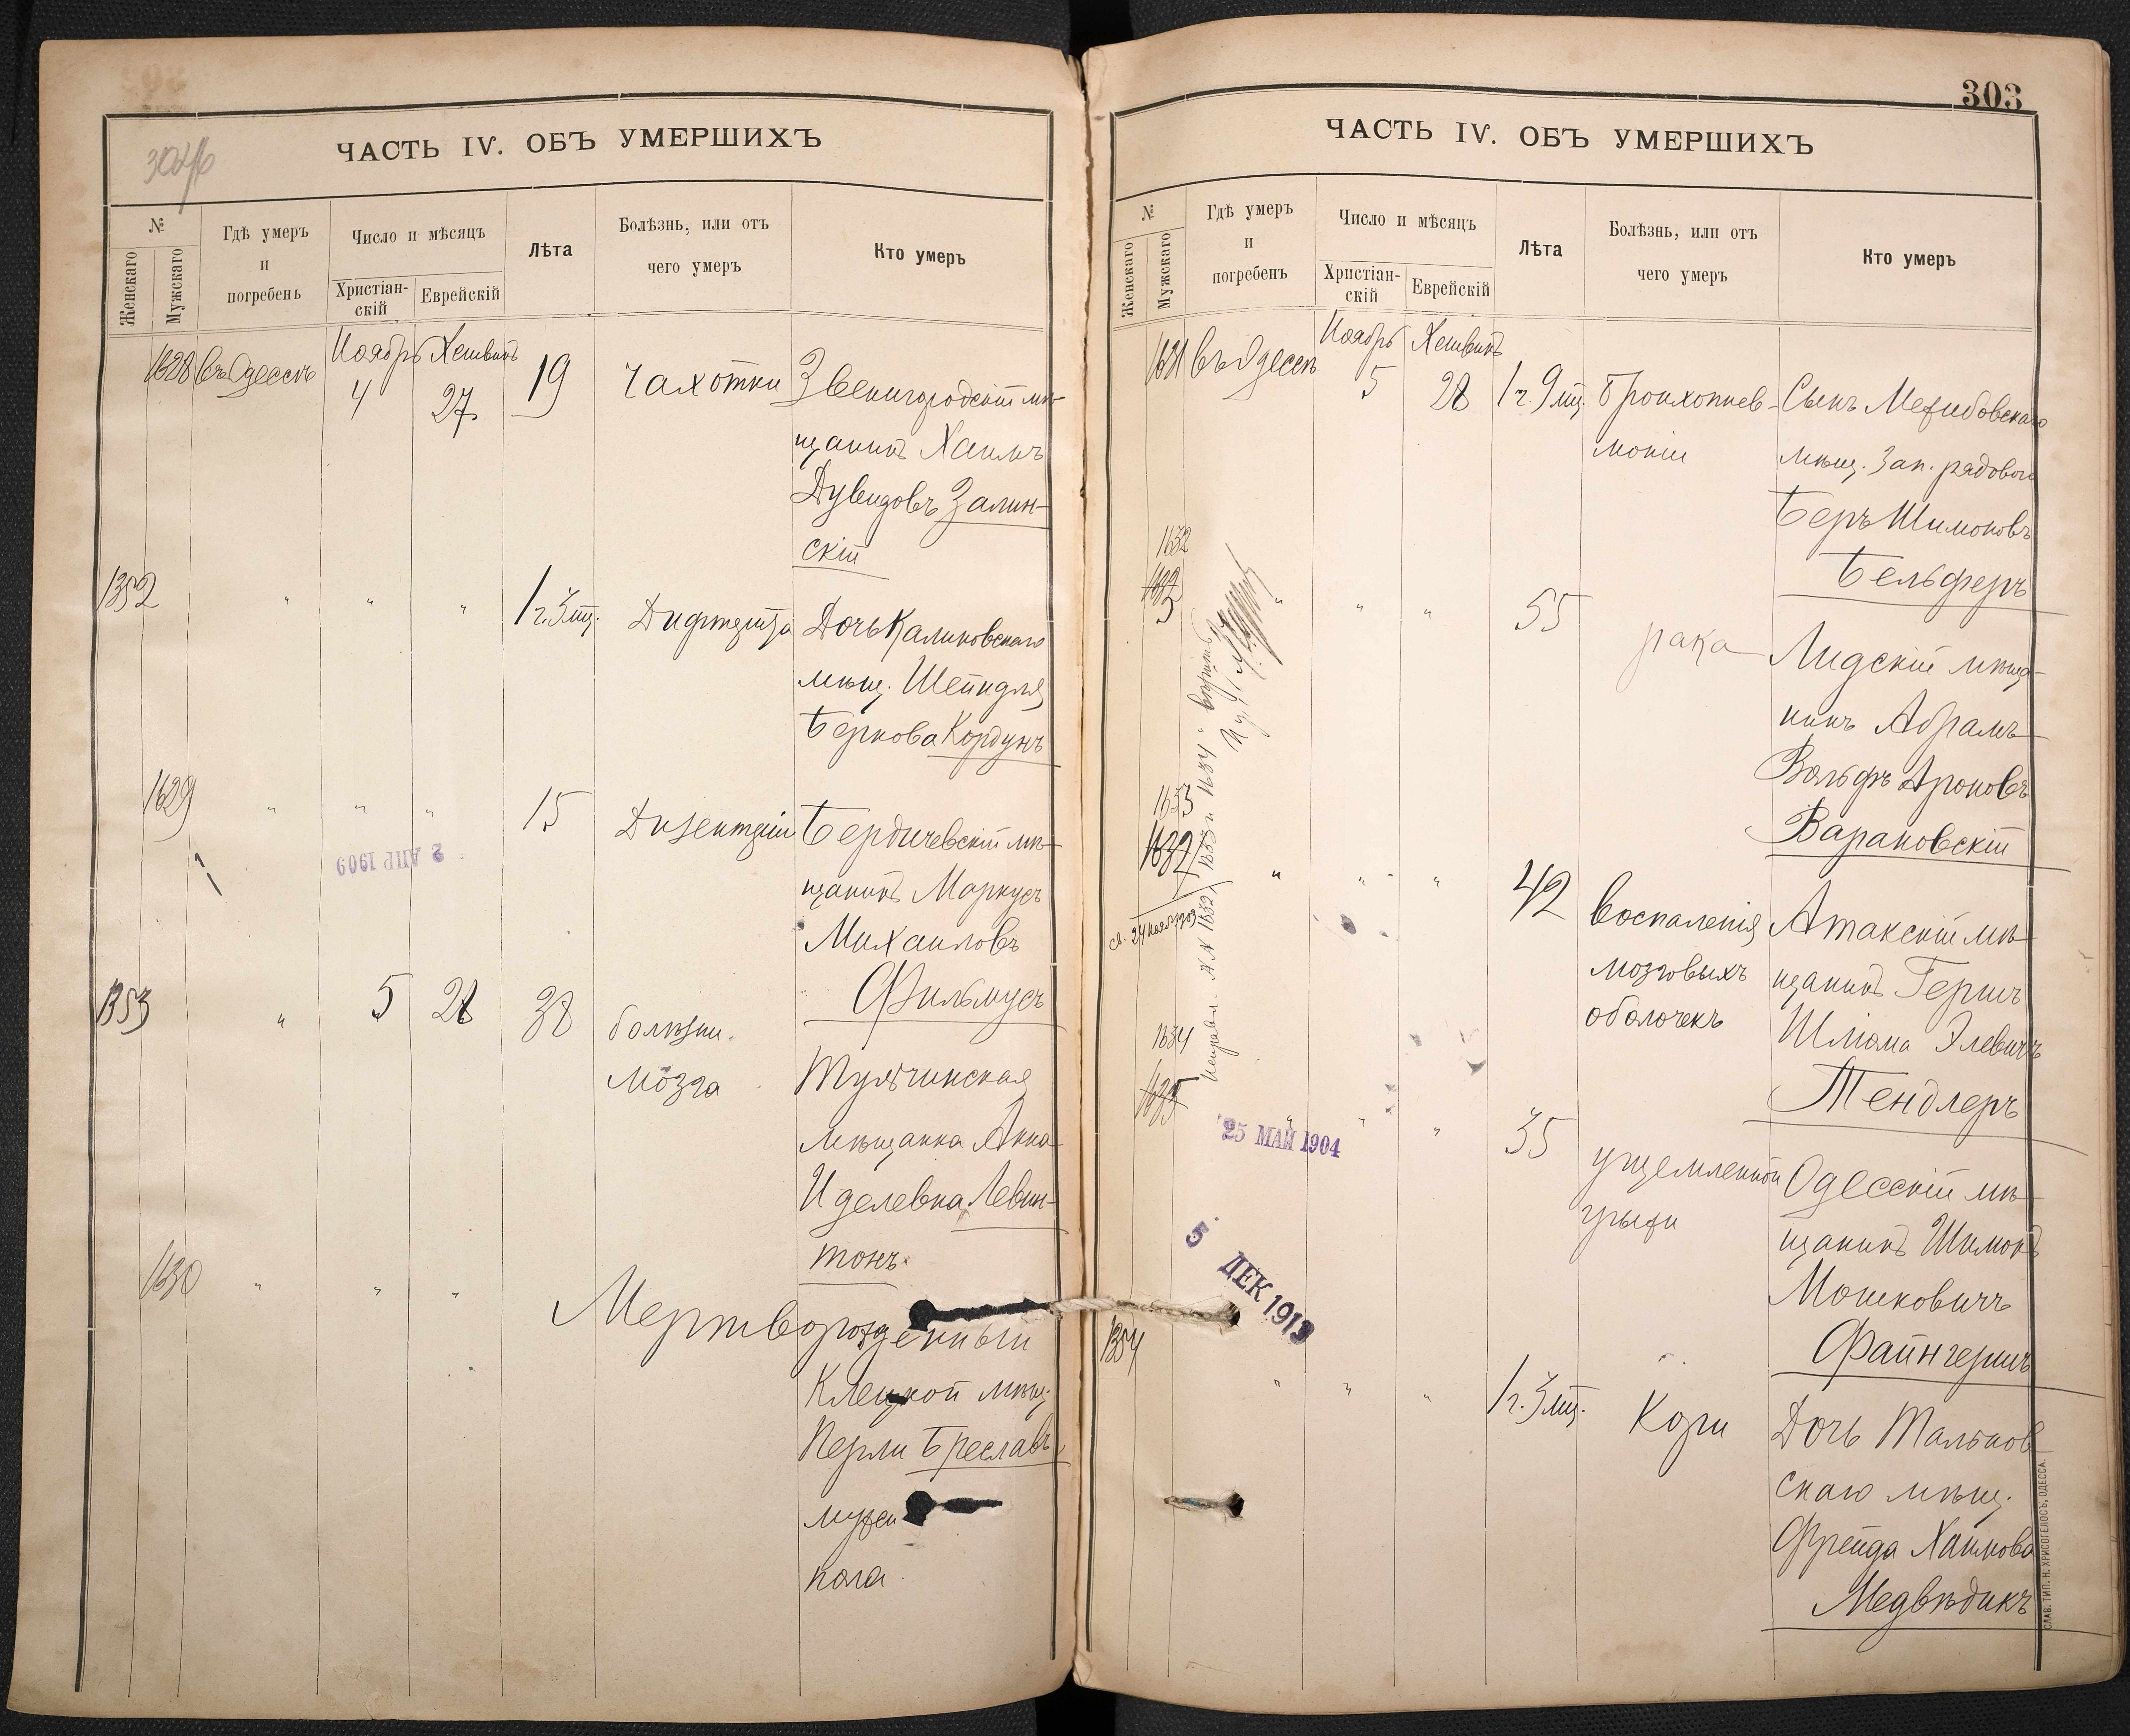 ЧАСТЬ IV. ОБЪ УМЕРШИХЪ
№
Женскаго
Мужскаго
Гдѣ умеръ
и
погребенъ
Число и мѣсяцъ
Христіан-
скій
Еврейскій
Лѣта
Болѣзнь, или отъ
чего умеръ
Кто умеръ
1628 въ Одессѣ Ноябрь 4 Хешвинъ 27 19 Чахотки Звенигородскій мѣ-
щанинъ Хаимъ
Дувидовъ Залин-
скій
1352 " " " 1 г. 3 мц. Дифтерита Дочь Калиновскаго
мѣщ. Шейндля
Беркова Кордунъ
1629 " " " 15 Дизентеріи Бердичевскій мѣ-
щанинъ Маркусъ
Михаиловъ
Фильмусъ
2 АПР 1909
1353 " 5 28 38 болѣзни
мозга
Тульчинская
мѣщанка Анна
Иделевна Левин-
тонъ
1630 " " " Мертворожденный
Клецкой мѣщ.
Перли Бреславъ
мужск
пола
303
ЧАСТЬ IV. ОБЪ УМЕРШИХЪ
№
Женскаго
Мужскаго
Гдѣ умеръ
и
погребенъ
Число и мѣсяцъ
Христіан-
скій
Еврейскій
Лѣта
Болѣзнь, или отъ
чего умеръ
Кто умеръ
1631 въ Одессѣ Ноябрь 5 Хешвинъ 28 1 г. 9 мц. Бронхопнев-
моніи
Сынъ Меджибовскаго
мѣщ. Зап. рядового
Беръ Шимоновъ
Бельферъ
1632
" " " 55 рака Лидскій мѣща-
нинъ Абрамъ
Вольфъ Ароновъ
Варановскій
1633
1632 " " " 42 Воспаленія
мозговыхъ
оболочекъ
Атакскій мѣ-
щанинъ Гершъ
Шлiома Элевичъ
Тендлеръ
Исправл. №№ 1632, 1633 и 1634 " вѣрить
1634
1635 " " " 35 ущемленной
грыжи
Одесскій мѣ-
щанинъ Шимонъ
Мошковичъ
Файнгершъ
25 МАЙ 1904
5 ДЕК 1913
1354 " " " 1 г. 3 мц. Кори Дочь Тальнов-
скаго мѣщ.
Фрейда Хаимова
Медвѣдикъ
СЛАВ. ТИП. Н. ХРИСОГЕЛОСЪ, ОДЕССА.